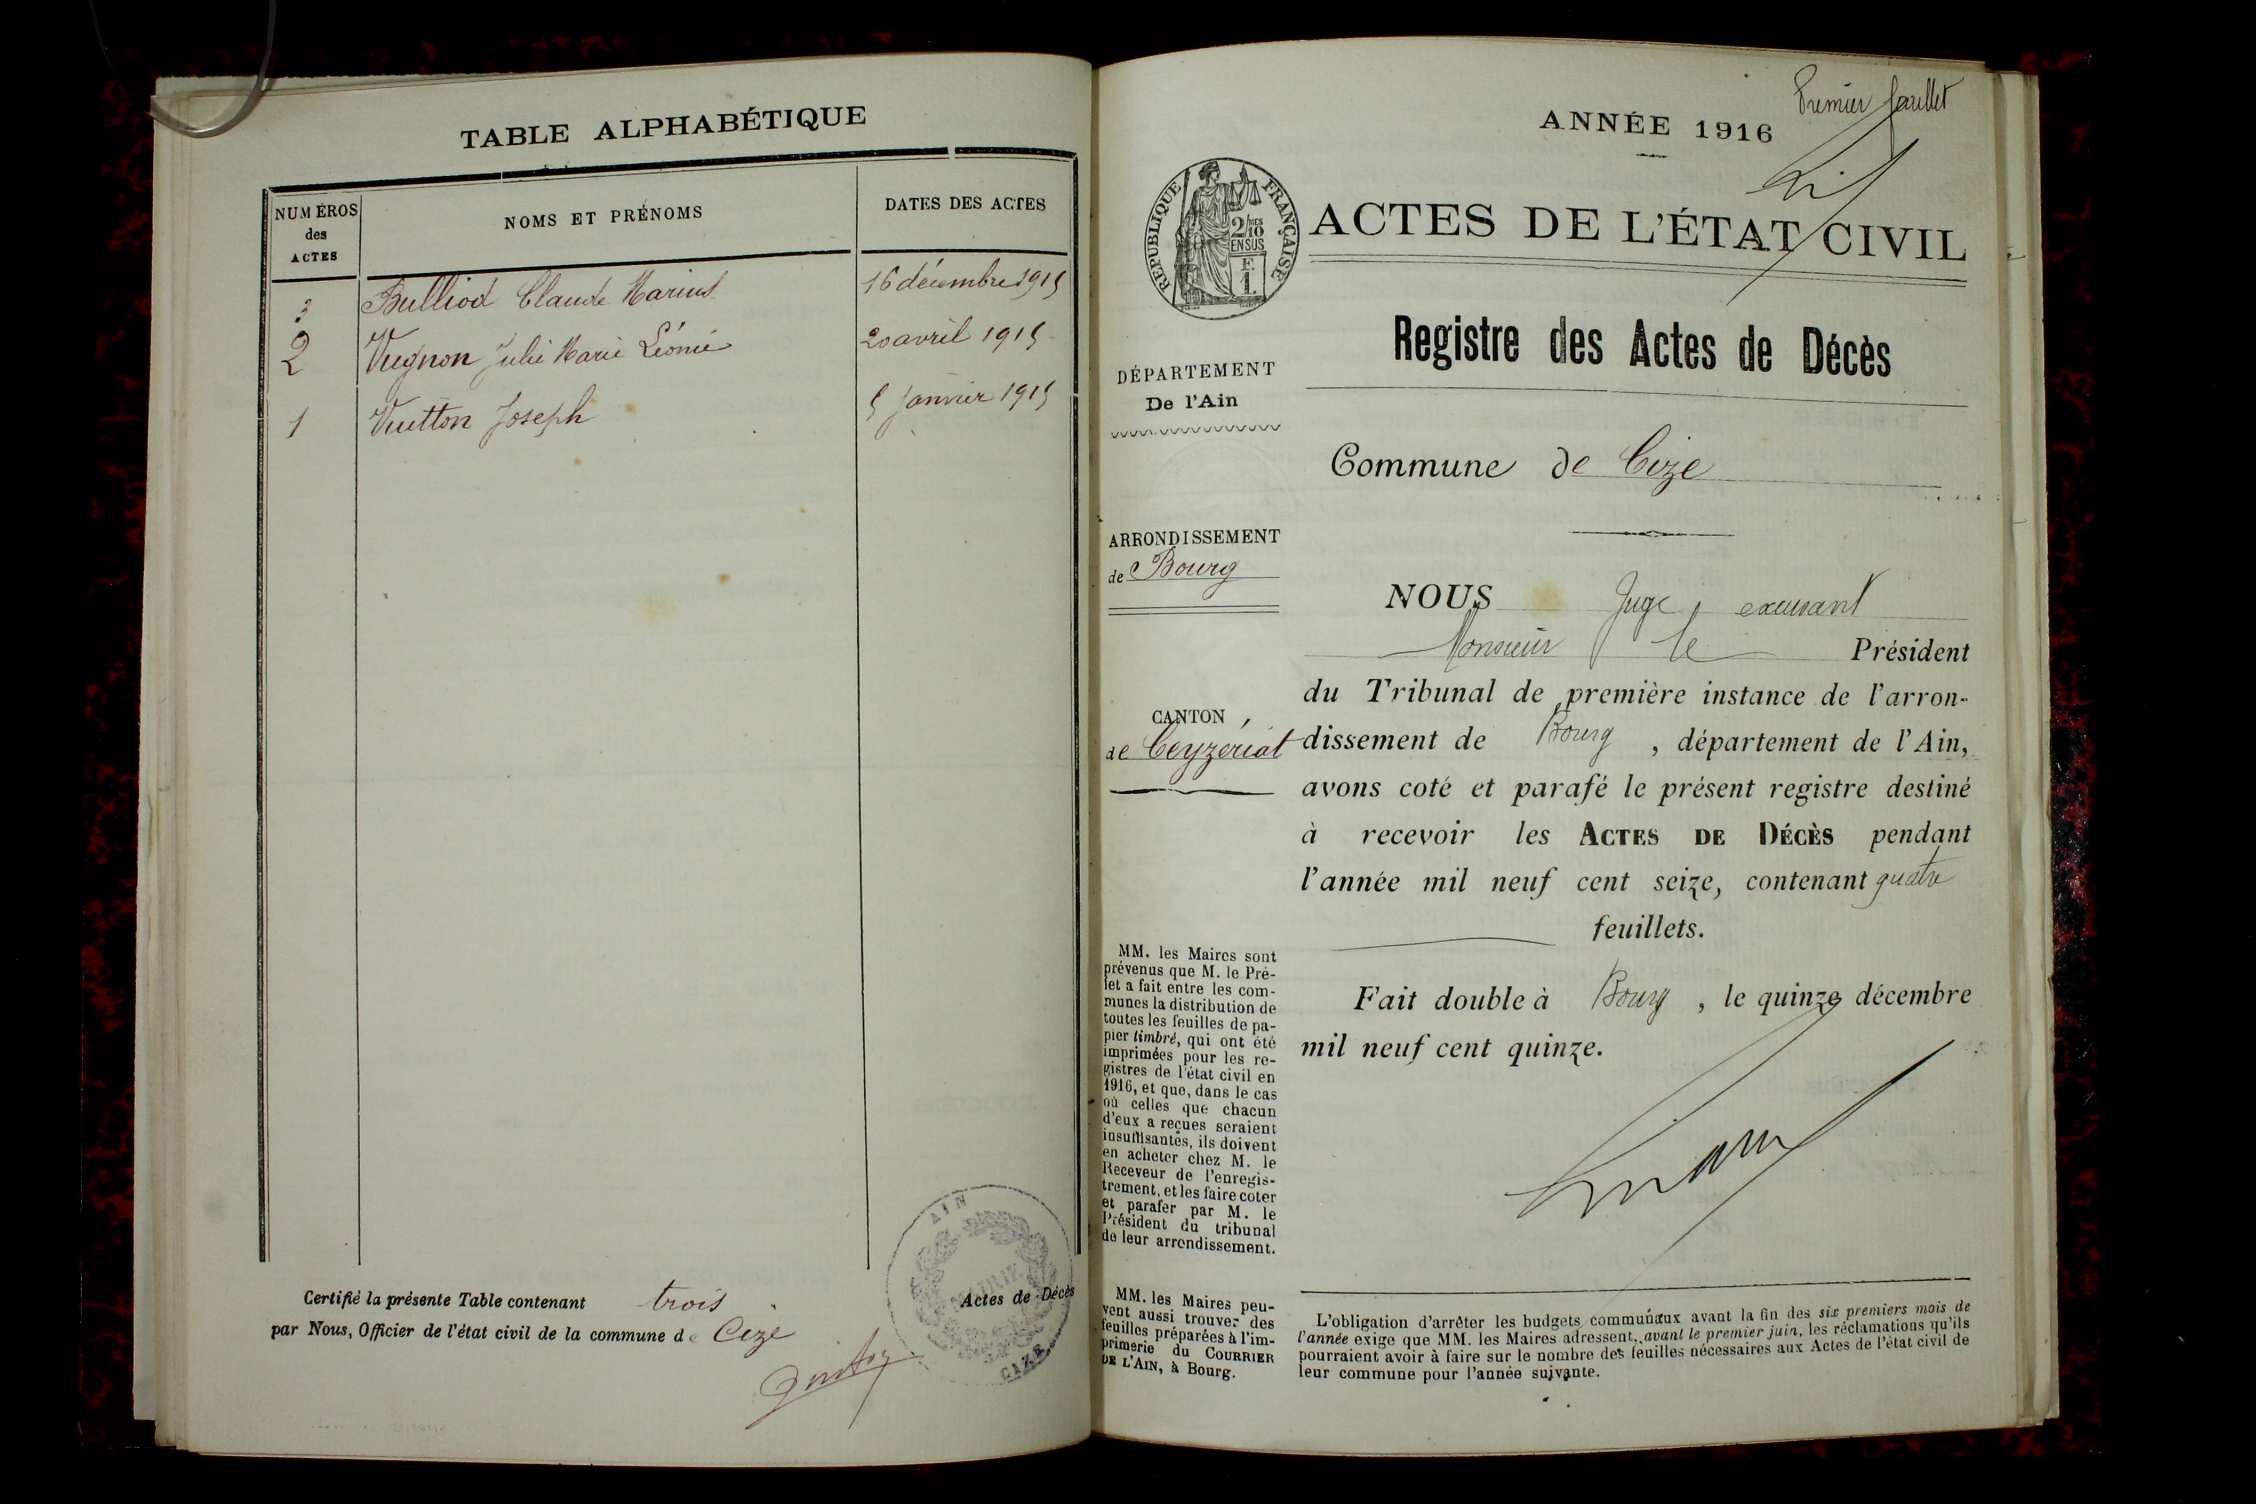 TABLE ALPHABÉTIQUE
NUMÉROS
des
ACTES
NOMS ET PRÉNOMS
DATES DES ACTES
3 Bulliod Claude Marius 16 décembre 1915
2 Vugnon Julie Marie Léonie 20 avril 1915
1 Vuitton Joseph 5 janvier 1915
Certifié la présente Table contenant trois
par Nous, Officier de l'état civil de la commune de Cize
AIN
MAIRIE
CIZE
Actes de Décès
Premier feuillet
ANNÉE 1916
RÉPUBLIQUE FRANÇAISE
2/10
EN SUS
F.
1.
ACTES DE L'ÉTAT CIVIL
Registre des Actes de Décès
DÉPARTEMENT
De l'Ain
Commune de Cize
ARRONDISSEMENT
de Bourg
CANTON
de Ceyzériat
NOUS Juge excusant
Monsieur le Président
du Tribunal de première instance de l'arron-
dissement de Bourg, département de l'Ain,
avons coté et parafé le présent registre destiné
à recevoir les ACTES DE DÉCÈS pendant
l'année mil neuf cent seize, contenant quatre
feuillets.
Fait double à Bourg, le quinze décembre
mil neuf cent quinze.
MM. les Maires sont
prévenus que M. le Pré-
fet a fait entre les com-
munes la distribution de
toutes les feuilles de pa-
pier timbré, qui ont été
imprimées pour les re-
gistres de l'état civil en
1916, et que, dans le cas
où celles que chacun
d'eux a reçues seraient
insuffisantes, ils doivent
en acheter chez M. le
Receveur de l'enregis-
trement, et les faire coter
et parafer par M. le
Président du tribunal
de leur arrondissement.
MM. les Maires peu-
vent aussi trouver des
feuilles préparées à l'im-
primerie du COURRIER
DE L'AIN, à Bourg.
L'obligation d'arrêter les budgets communaux avant la fin des six premiers mois de
l'année exige que MM. les Maires adressent, avant le premier juin, les réclamations qu'ils
pourraient avoir à faire sur le nombre des feuilles nécessaires aux Actes de l'état civil de
leur commune pour l'année suivante.